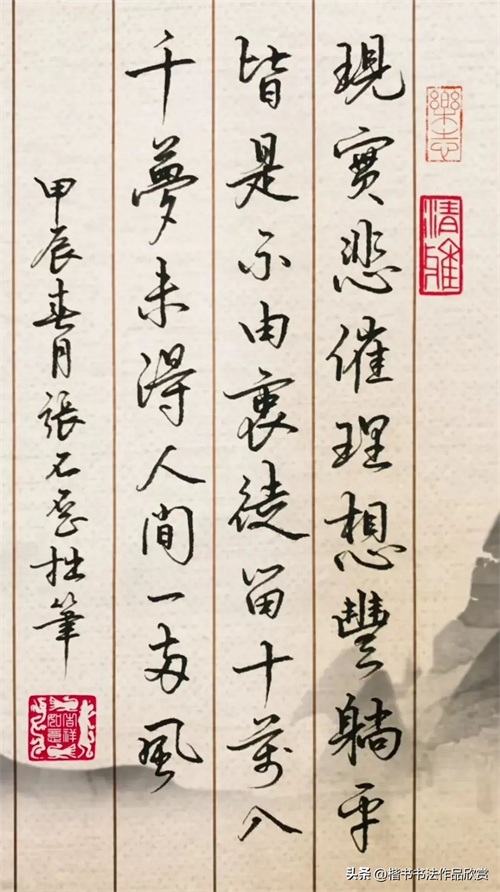 清雅
現實悲催理想豐躺平
皆是不由衷徒留十萬八
千夢未得人間一兩風
甲辰春月張石拙筆
吉祥如意
头条 @楷书书法作品欣赏